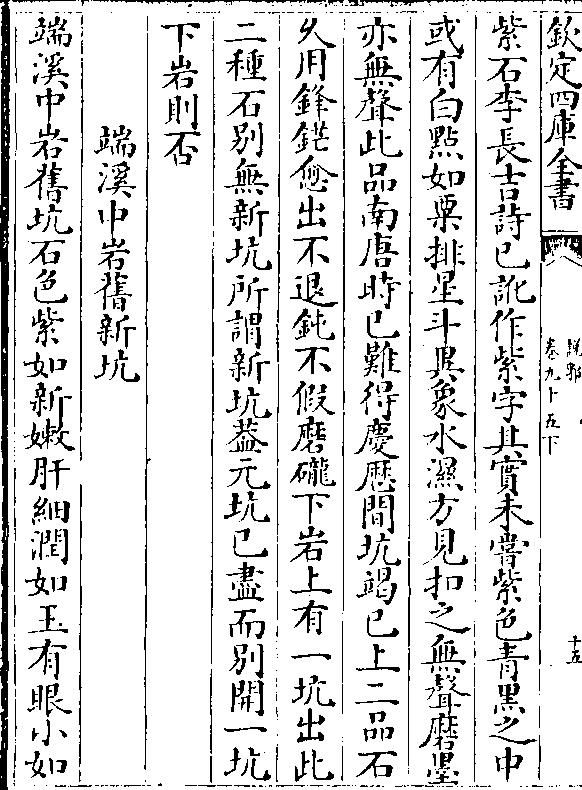 欽定四庫全書
說郛
卷九十五下
十五
紫石李長吉詩已訛作紫字其實未嘗紫色青黑之中
或有白點如粟排星斗異象水濕方見扣之無聲磨墨
亦無聲此品南唐時已難得慶厯間坑竭已上二品石
久用鋒鋩愈出不退鈍不假磨礲下岩上有一坑出此
二種石别無新坑所謂新坑葢元坑已盡而别開一坑
下岩則否
端溪中岩舊新坑
端溪中岩舊坑石色紫如新嫩肝細潤如玉有眼小如